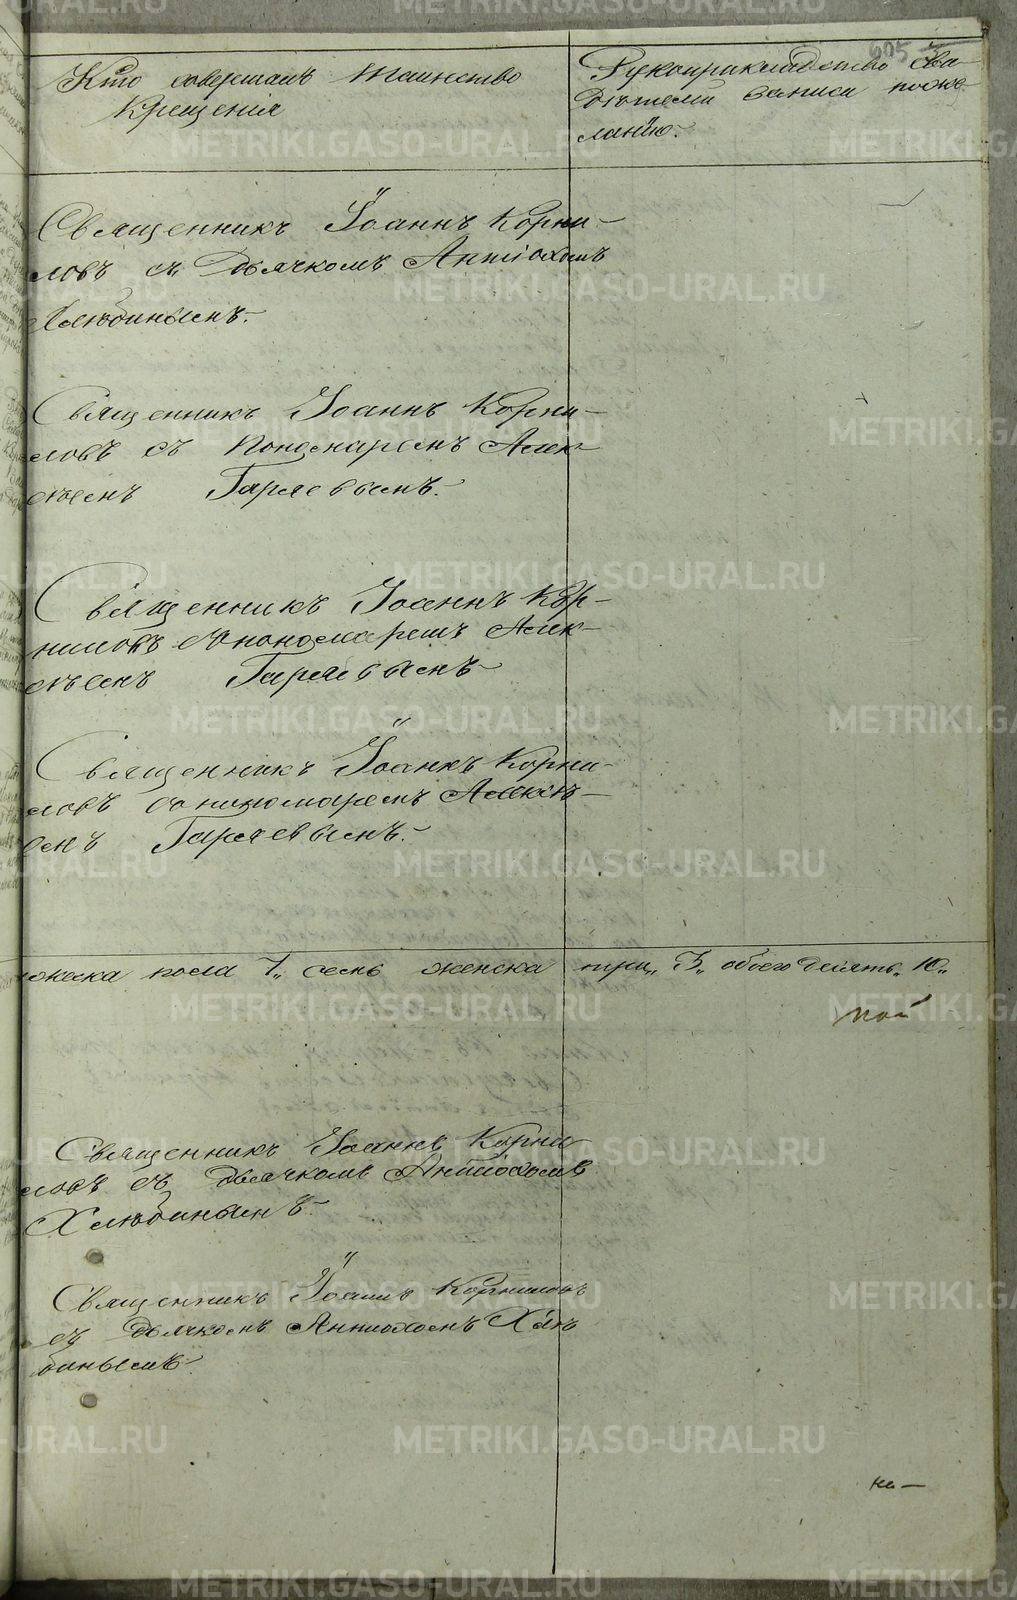 605
Кто совершалъ таинство
Крещенія
Рукоприкладство сви-
дѣтелей записи по же-
ланію.
Священникъ Іоаннъ Корни-
ловъ съ Дьячкомъ Антіохомъ
Хлѣбинымъ.
Священникъ Іоаннъ Корни-
ловъ съ Пономаремъ Алек-
сѣемъ Гаряевымъ.
Священникъ Іоаннъ Кор-
ниловъ съ пономаремъ Алек-
сѣемъ Гаряевымъ
Священникъ Іоаннъ Корни-
ловъ съ пономаремъ Алексѣ-
емъ Гаряевымъ.
мужеска пола 7, семь женска три, 3, обоего 10,
Священникъ Іоаннъ Корни
ловъ съ дьячкомъ Антіохомъ
Хлѣбинымъ.
Священникъ Іоаннъ Корниловъ
съ Дьячкомъ Антіохомъ Хлѣ
бинымъ.
METRIKI.GASO-URAL.RU